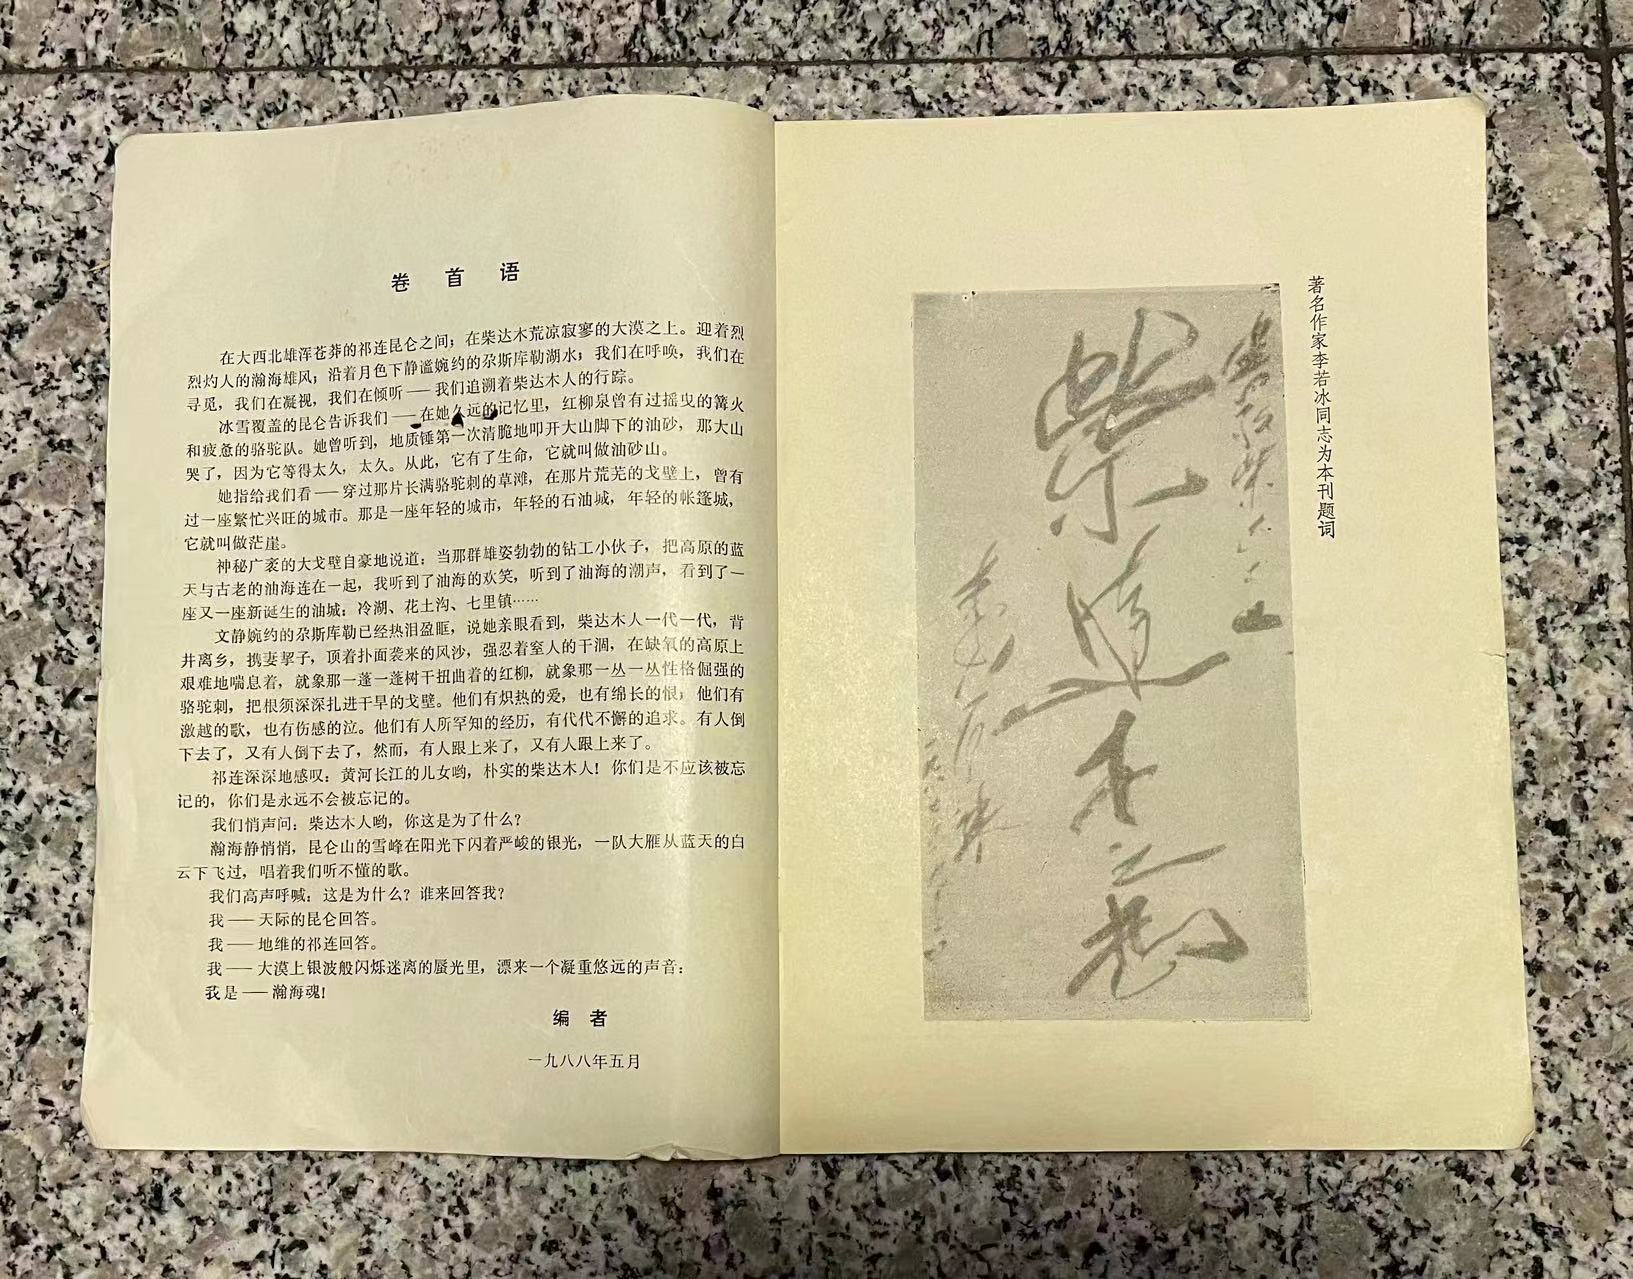 卷首语
在大西北雄浑苍莽的祁连昆仑之间；在柴达木荒凉寂寥的大漠之上。迎着烈
烈灼人的瀚海雄风；沿着月色下静谧婉约的尕斯库勒湖水；我们在呼唤，我们在
寻觅，我们在凝视，我们在倾听——我们追溯着柴达木人的行踪。
冰雪覆盖的昆仑告诉我们——在她久远的记忆里，红柳泉曾有过摇曳的篝火
和疲惫的骆驼队。她曾听到，地质锤第一次清脆地叩开大山脚下的油砂，那大山
哭了，因为它等得太久，太久。从此，它有了生命，它就叫做油砂山。
她指给我们看——穿过那片长满骆驼刺的草滩，在那片荒芜的戈壁上，曾有
过一座繁忙兴旺的城市。那是一座年轻的城市，年轻的石油城，年轻的帐篷城，
它就叫做茫崖。
神秘广袤的大戈壁自豪地说道：当那群雄姿勃勃的钻工小伙子，把高原的蓝
天与古老的油海连在一起，我听到了油海的欢笑，听到了油海的潮声，看到了一
座又一座新诞生的油城：冷湖、花土沟、七里镇……
文静婉约的尕斯库勒已经热泪盈眶，说她亲眼看到，柴达木人一代一代，背
井离乡，携妻挈子，顶着扑面袭来的风沙，强忍着窒人的干涸，在缺氧的高原上
艰难地喘息着，就象那一蓬一蓬树干扭曲着的红柳，就象那一丛一丛性格倔强的
骆驼刺，把根须深深扎进干旱的戈壁。他们有炽热的爱，也有绵长的恨；他们有
激越的歌，也有伤感的泣。他们有人所罕知的经历，有代代不懈的追求。有人倒
下去了，又有人倒下去了，然而，有人跟上来了，又有人跟上来了。
祁连深深地感叹：黄河长江的儿女哟，朴实的柴达木人！你们是不应该被忘
记的，你们是永远不会被忘记的。
我们悄声问：柴达木人哟，你这是为了什么？
瀚海静悄悄，昆仑山的雪峰在阳光下闪着严峻的银光，一队大雁从蓝天的白
云下飞过，唱着我们听不懂的歌。
我们高声呼喊：这是为什么？谁来回答我？
我——天际的昆仑回答。
我——地维的祁连回答。
我——大漠上银波般闪烁迷离的蜃光里，漂来一个凝重悠远的声音：
我是——瀚海魂！
编者
一九八八年五月
著名作家李若冰同志为本刊题词
柴达木之魂
李若冰